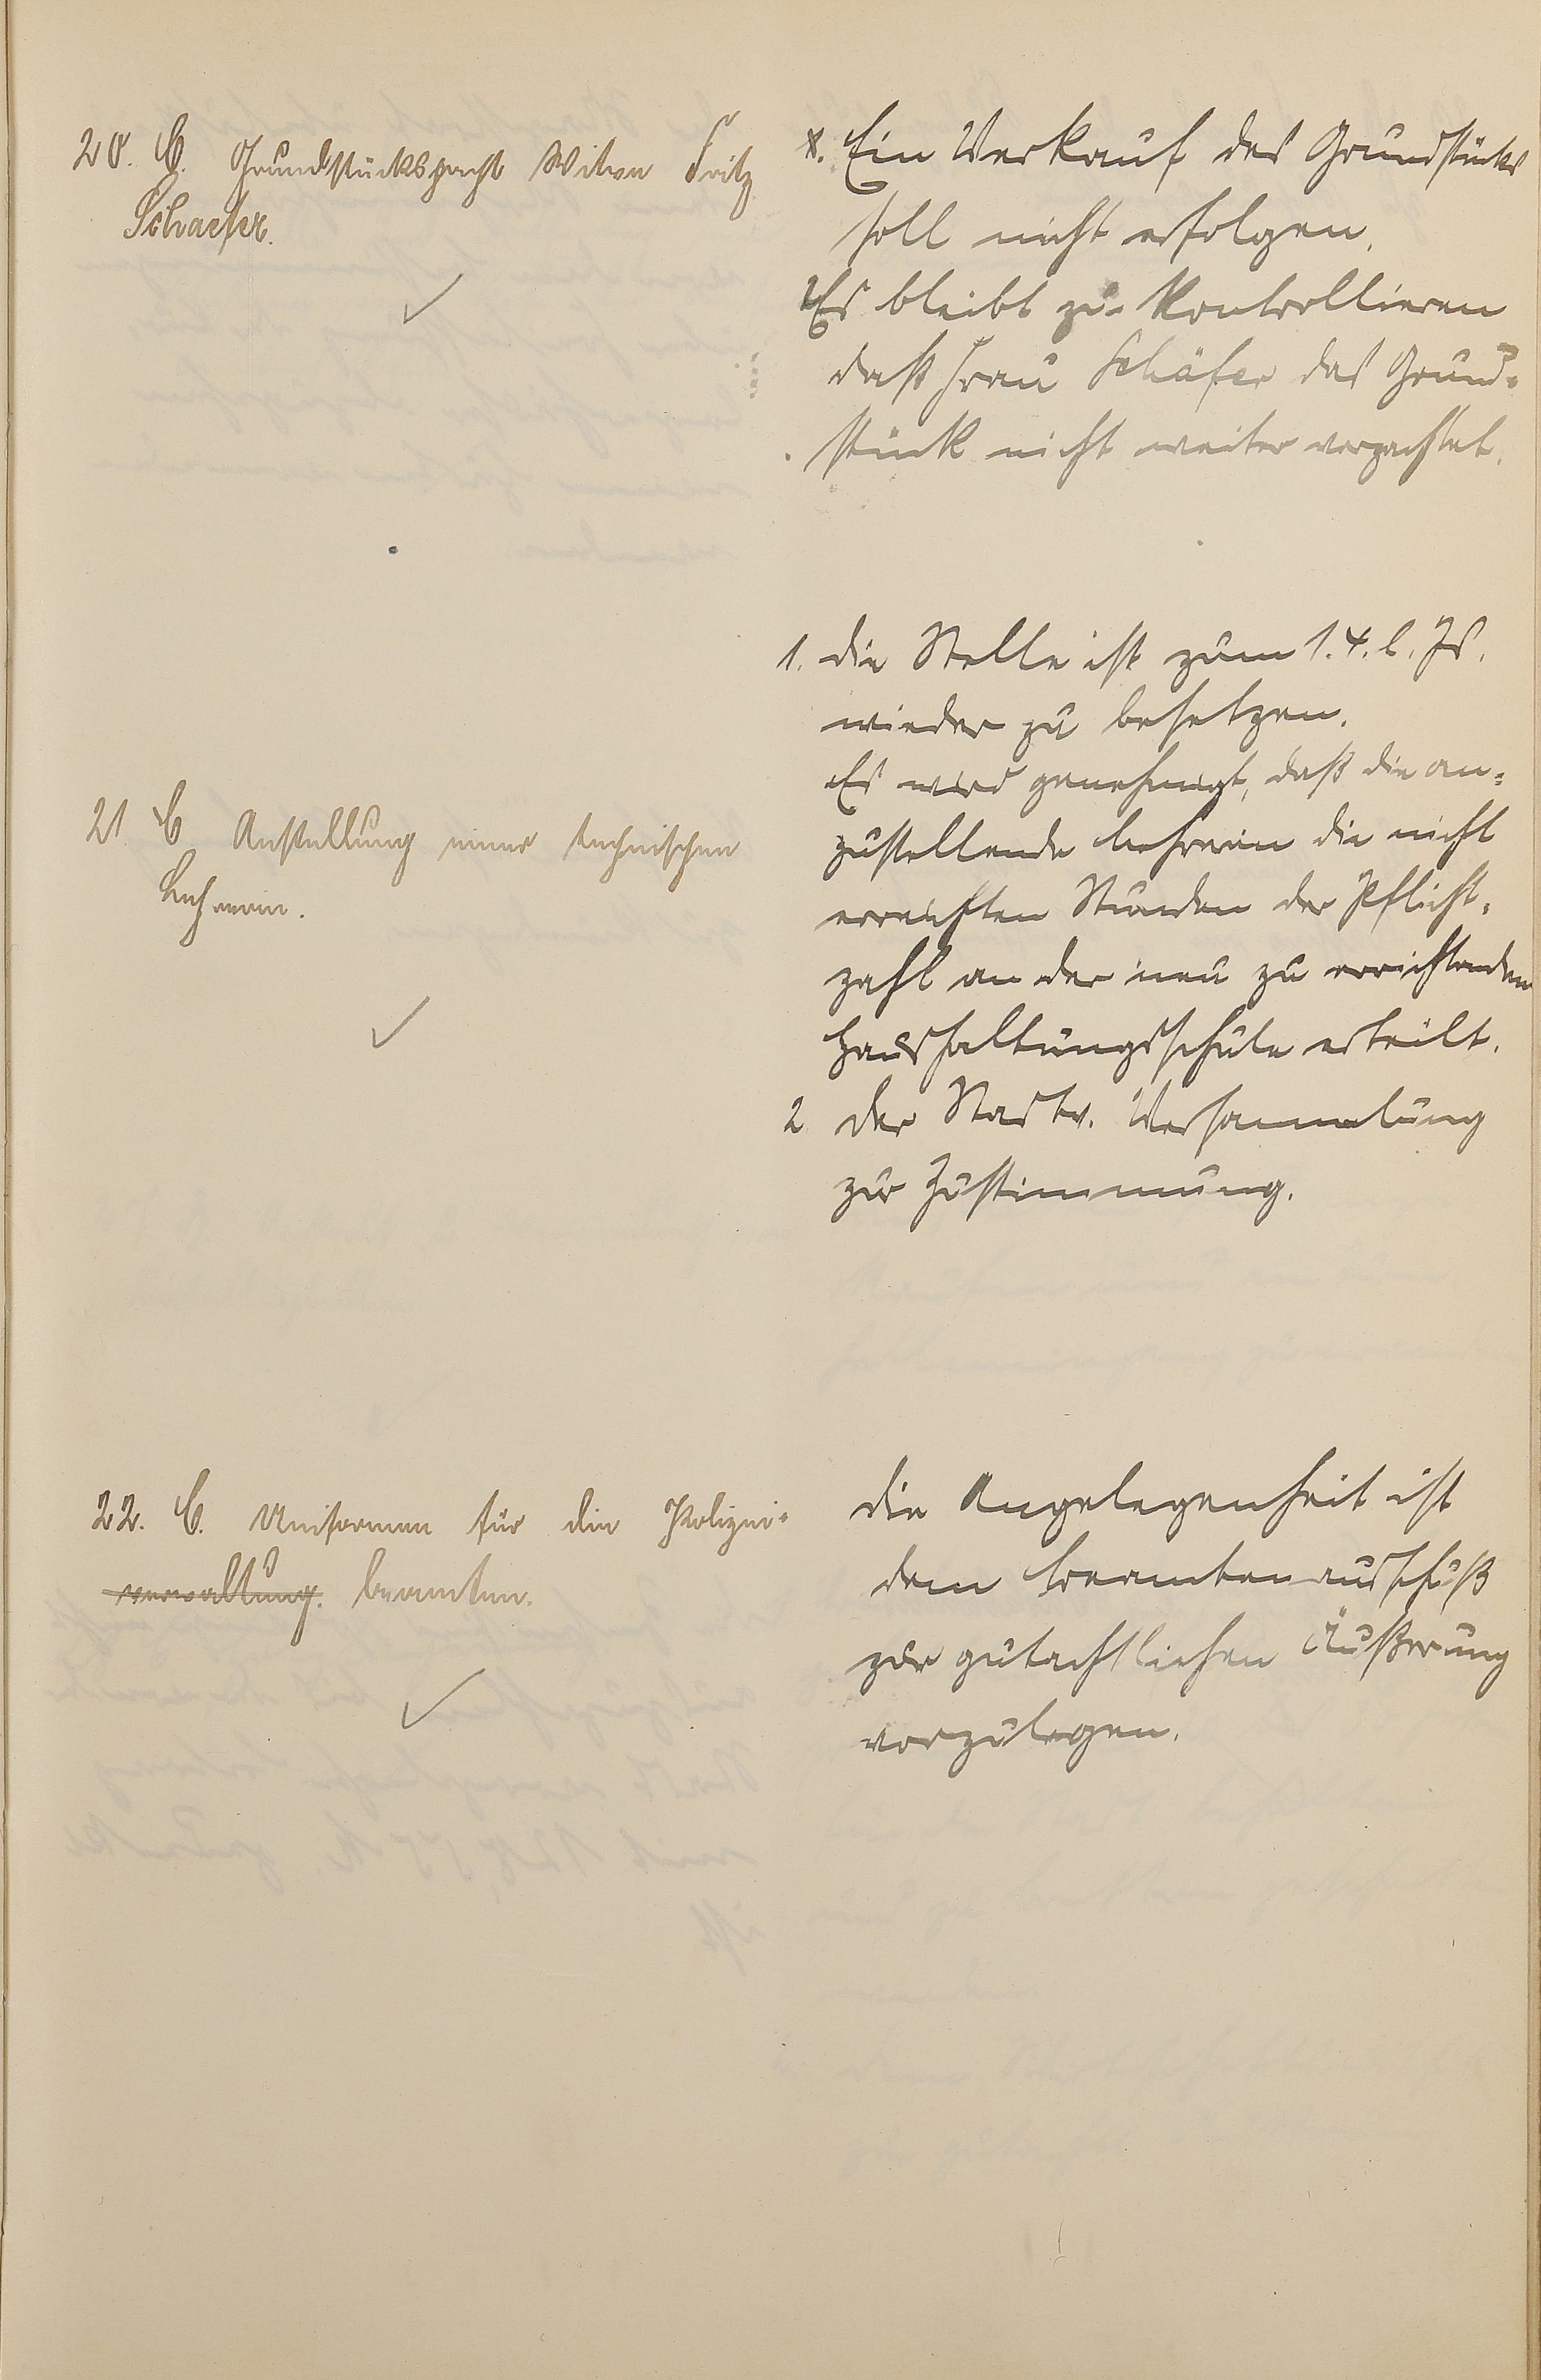 20. C. Grundstückspacht Witwe Fritz
Schaefer.
1. Ein Verkauf des Grundstücks
soll nicht erfolgen.
2. Es bleibt zu kontrollieren
daß Frau Schäfer das Grund-
stück nicht weiter verpachtet.
21 C Anstellung einer technischen
Lehrerin.
1. Die Stelle ist zum 1.4.l. Js.
wieder zu besetzen.
Es wird genehmigt, daß die an-
zustellende Lehrerin die nicht
erreichten Stunden der Pflicht-
zahl an der neu zu errichtenden
Haushaltungsschule erteilt.
2 Der Stadtv. Versammlung
zur Zustimmung.
22. C. Uniformen für die Polizei-
verwaltung. beamten.
Die Angelegenheit ist
dem Beamtenausschuß
zur gutachtlichen Äußerung
vorzulegen.